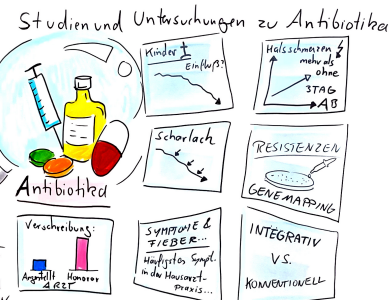 Studien und Untersuchungen zu Antibiotika
Kinder
Einfluß?
Halsschmerzen
mehr als
ohne
3 TAG
AB
Antibiotika
Scharlach
RESISTENZEN
GENEMAPPING
Verschreibung:
Angestellt Honorar
ARZT
SYMPTOME &
FIEBER...
Häufigstes Sympt.
in der Hausarzt-
Praxis...
INTEGRATIV
VS.
KONVENTIONELL